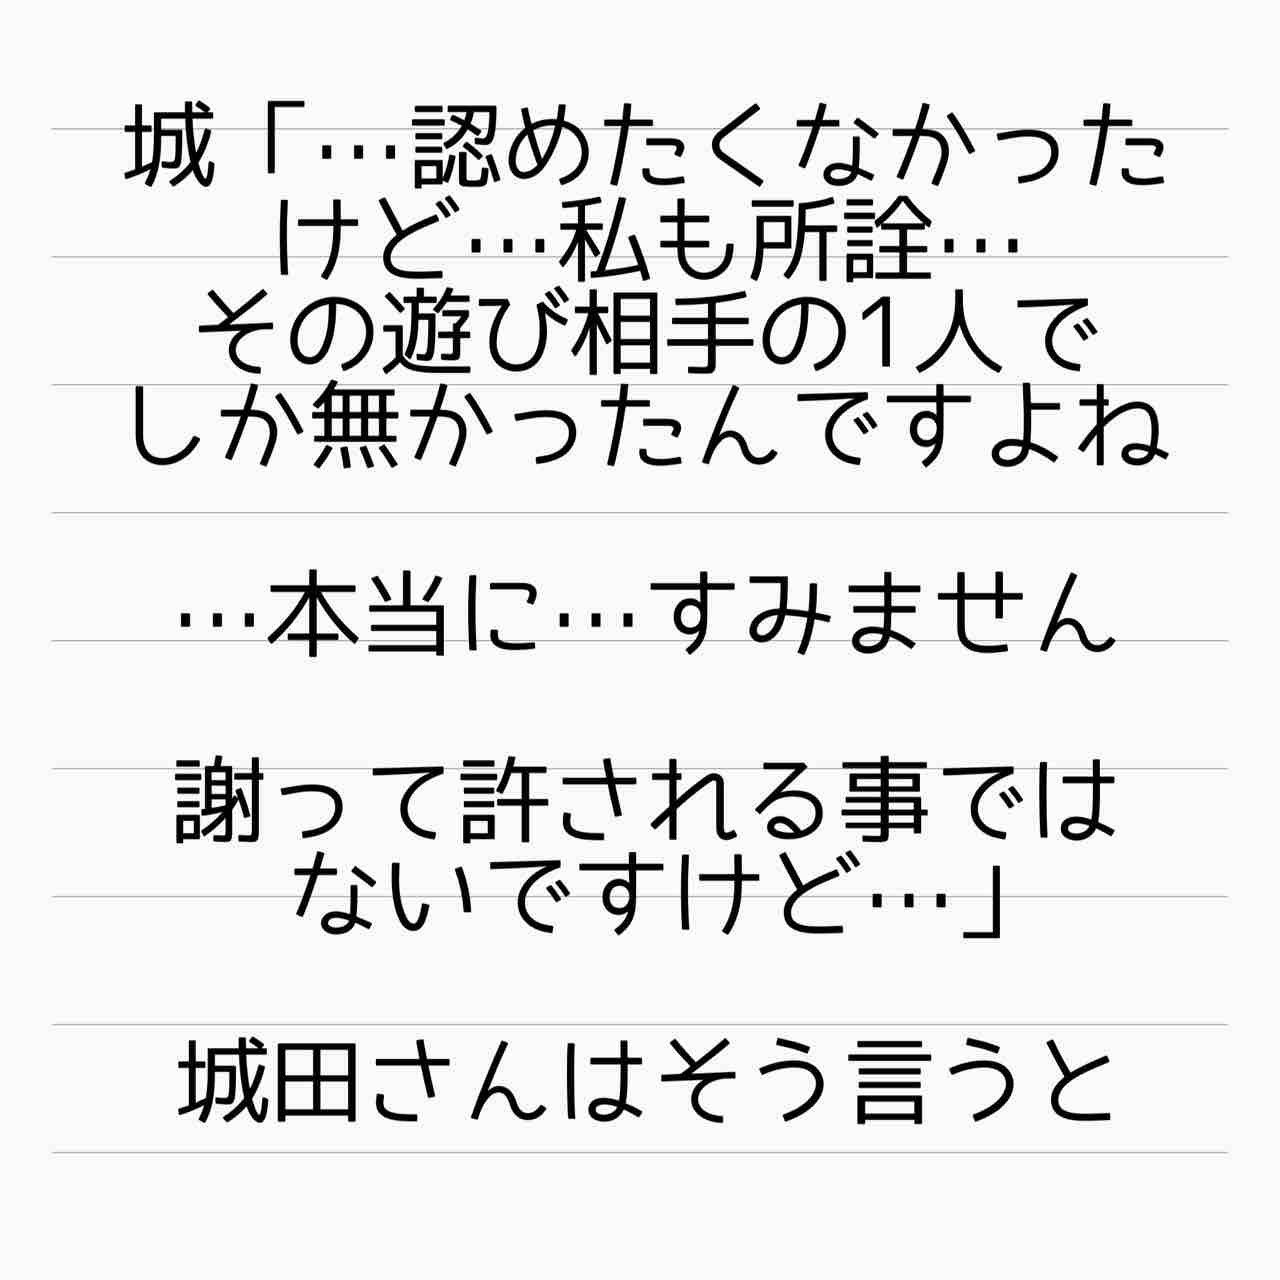 城「…認めたくなかった
けど…私も所詮…
その遊び相手の1人で
しか無かったんですよね
…本当に…すみません
謝って許される事では
ないですけど…」
城田さんはそう言うと